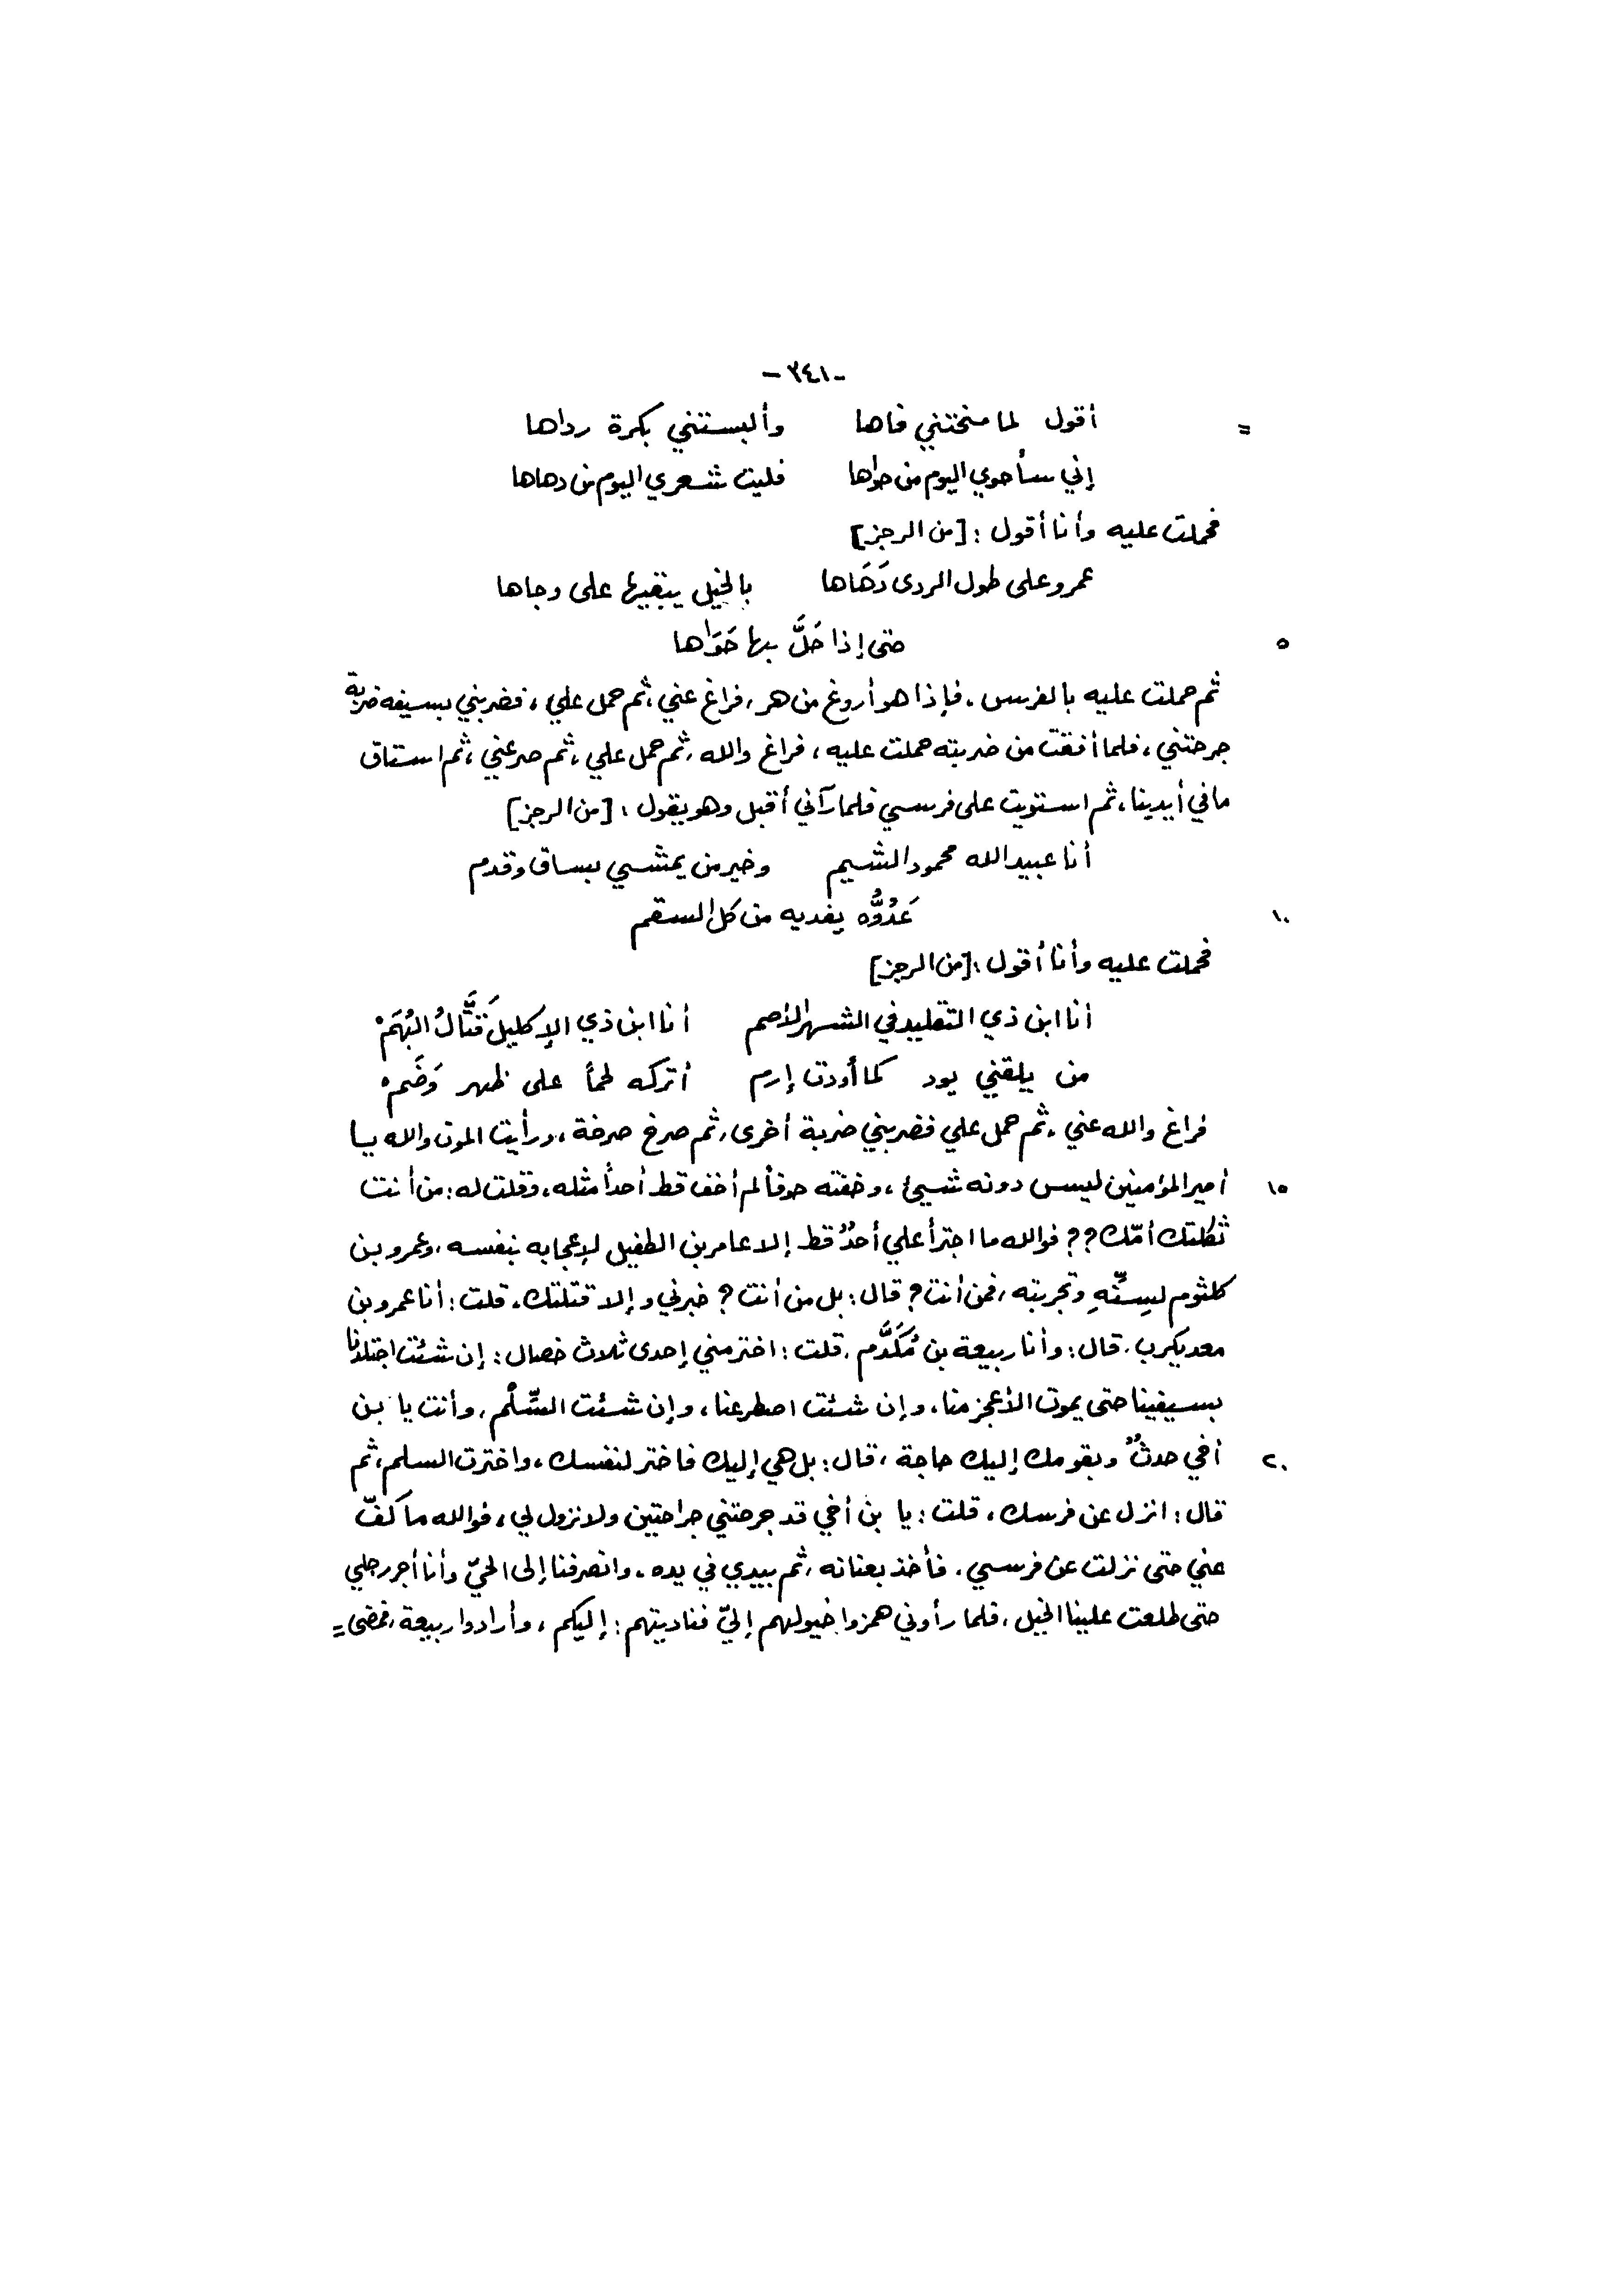 - ٣٤١ -
= أقول لما منحتني فاها وألبستني بكرة رداها
إني سأحوي اليوم من حواها فليت شعري اليوم من دهاها
فحملت عليه وأنا أقول : [من الرجز]
عمرو على طول الردى دَهَاها بالخيل يبقيها على وجاها
٥ حتى إذا حَلَّ بها حَوَاها
ثم حملت عليه بالفرس ، فإذا هو أروغ من هر ، فراغ عني ، ثم حمل علي ، فضربني بسيفه ضربة
جرحتني ، فلما أفقت من ضربته حملت عليه ، فراغ والله ، ثم حمل علي ، ثم صرعني ، ثم استاق
ما في أيدينا ، ثم استويت على فرسي فلما رآني أقبل وهو يقول : [من الرجز]
أنا عبيد الله محمود الشيم وخير من يمشي بساق وقدم
١٠ عَدُوُّه يفديه من كل السقم
فحملت عليه وأنا أقول : [من الرجز]
أنا ابن ذي التقليد في الشهر الأصم أنا ابن ذي الإكليل قَتَّالُ البُهَمْ
من يلقني يود كما أودت إرم أتركه لحماً على ظهر وَضَمْ
فراغ والله عني ، ثم حمل علي فضربني ضربة أخرى ، ثم صرخ صرخة ، ورأيت الموت والله يا
١٥ أمير المؤمنين ليس دونه شيئ ، وخفته خوفاً لم أخف قط أحداً مثله ، وقلت له : من أنت
ثكلتك أمّك ؟؟ فوالله ما اجترأ علي أحدٌ قط إلا عامر بن الطفيل لإعجابه بنفسه ، وعمرو بن
كلثوم لسِنِّهِ وتجربته ، فمن أنت ؟ قال : بل من أنت ؟ خبرني وإلا قتلتك ، قلت : أنا عمرو بن
معد يكرب ، قال : وأنا ربيعة بن مُكَدَّم ، قلت : اختر مني إحدى ثلاث خصال : إن شئت اجتلدنا
بسيفينا حتى يموت الأعجز منا ، وإن شئت اصطرعنا ، وإن شئت السِّلْم ، وأنت يا بن
٢٠ أخي حدثٌ وبقومك إليك حاجة ، قال : بل هي إليك فاختر لنفسك ، واخترت السلم ، ثم
قال : انزل عن فرسك ، قلت : يا بن أخي قد جرحتني جراحتين ولا نزول لي ، فوالله ما كفّ
عني حتى نزلت عن فرسي ، فأخذ بعنانه ، ثم بيدي في يده ، وانصرفنا إلى الحيّ وأنا أجر رجلي
حتى طلعت علينا الخيل ، فلما رأوني همزوا خيولهم إليّ فناديتهم : إليكم ، وأرادوا ربيعة ، فمضى =